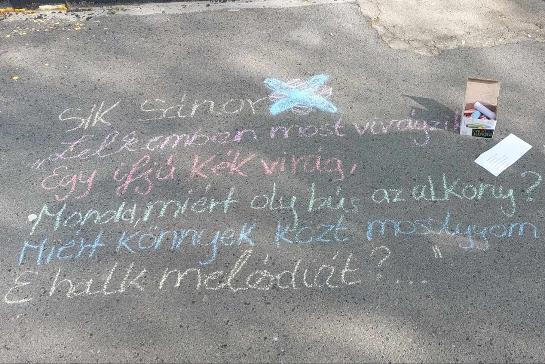 Sík Sándor
"Lelkemban most virágzik
Egy ifjú kék virág,
Mondd, miért oly bús az alkony?
Miért könnyek közt mosolygom
E halk melódiát?"....